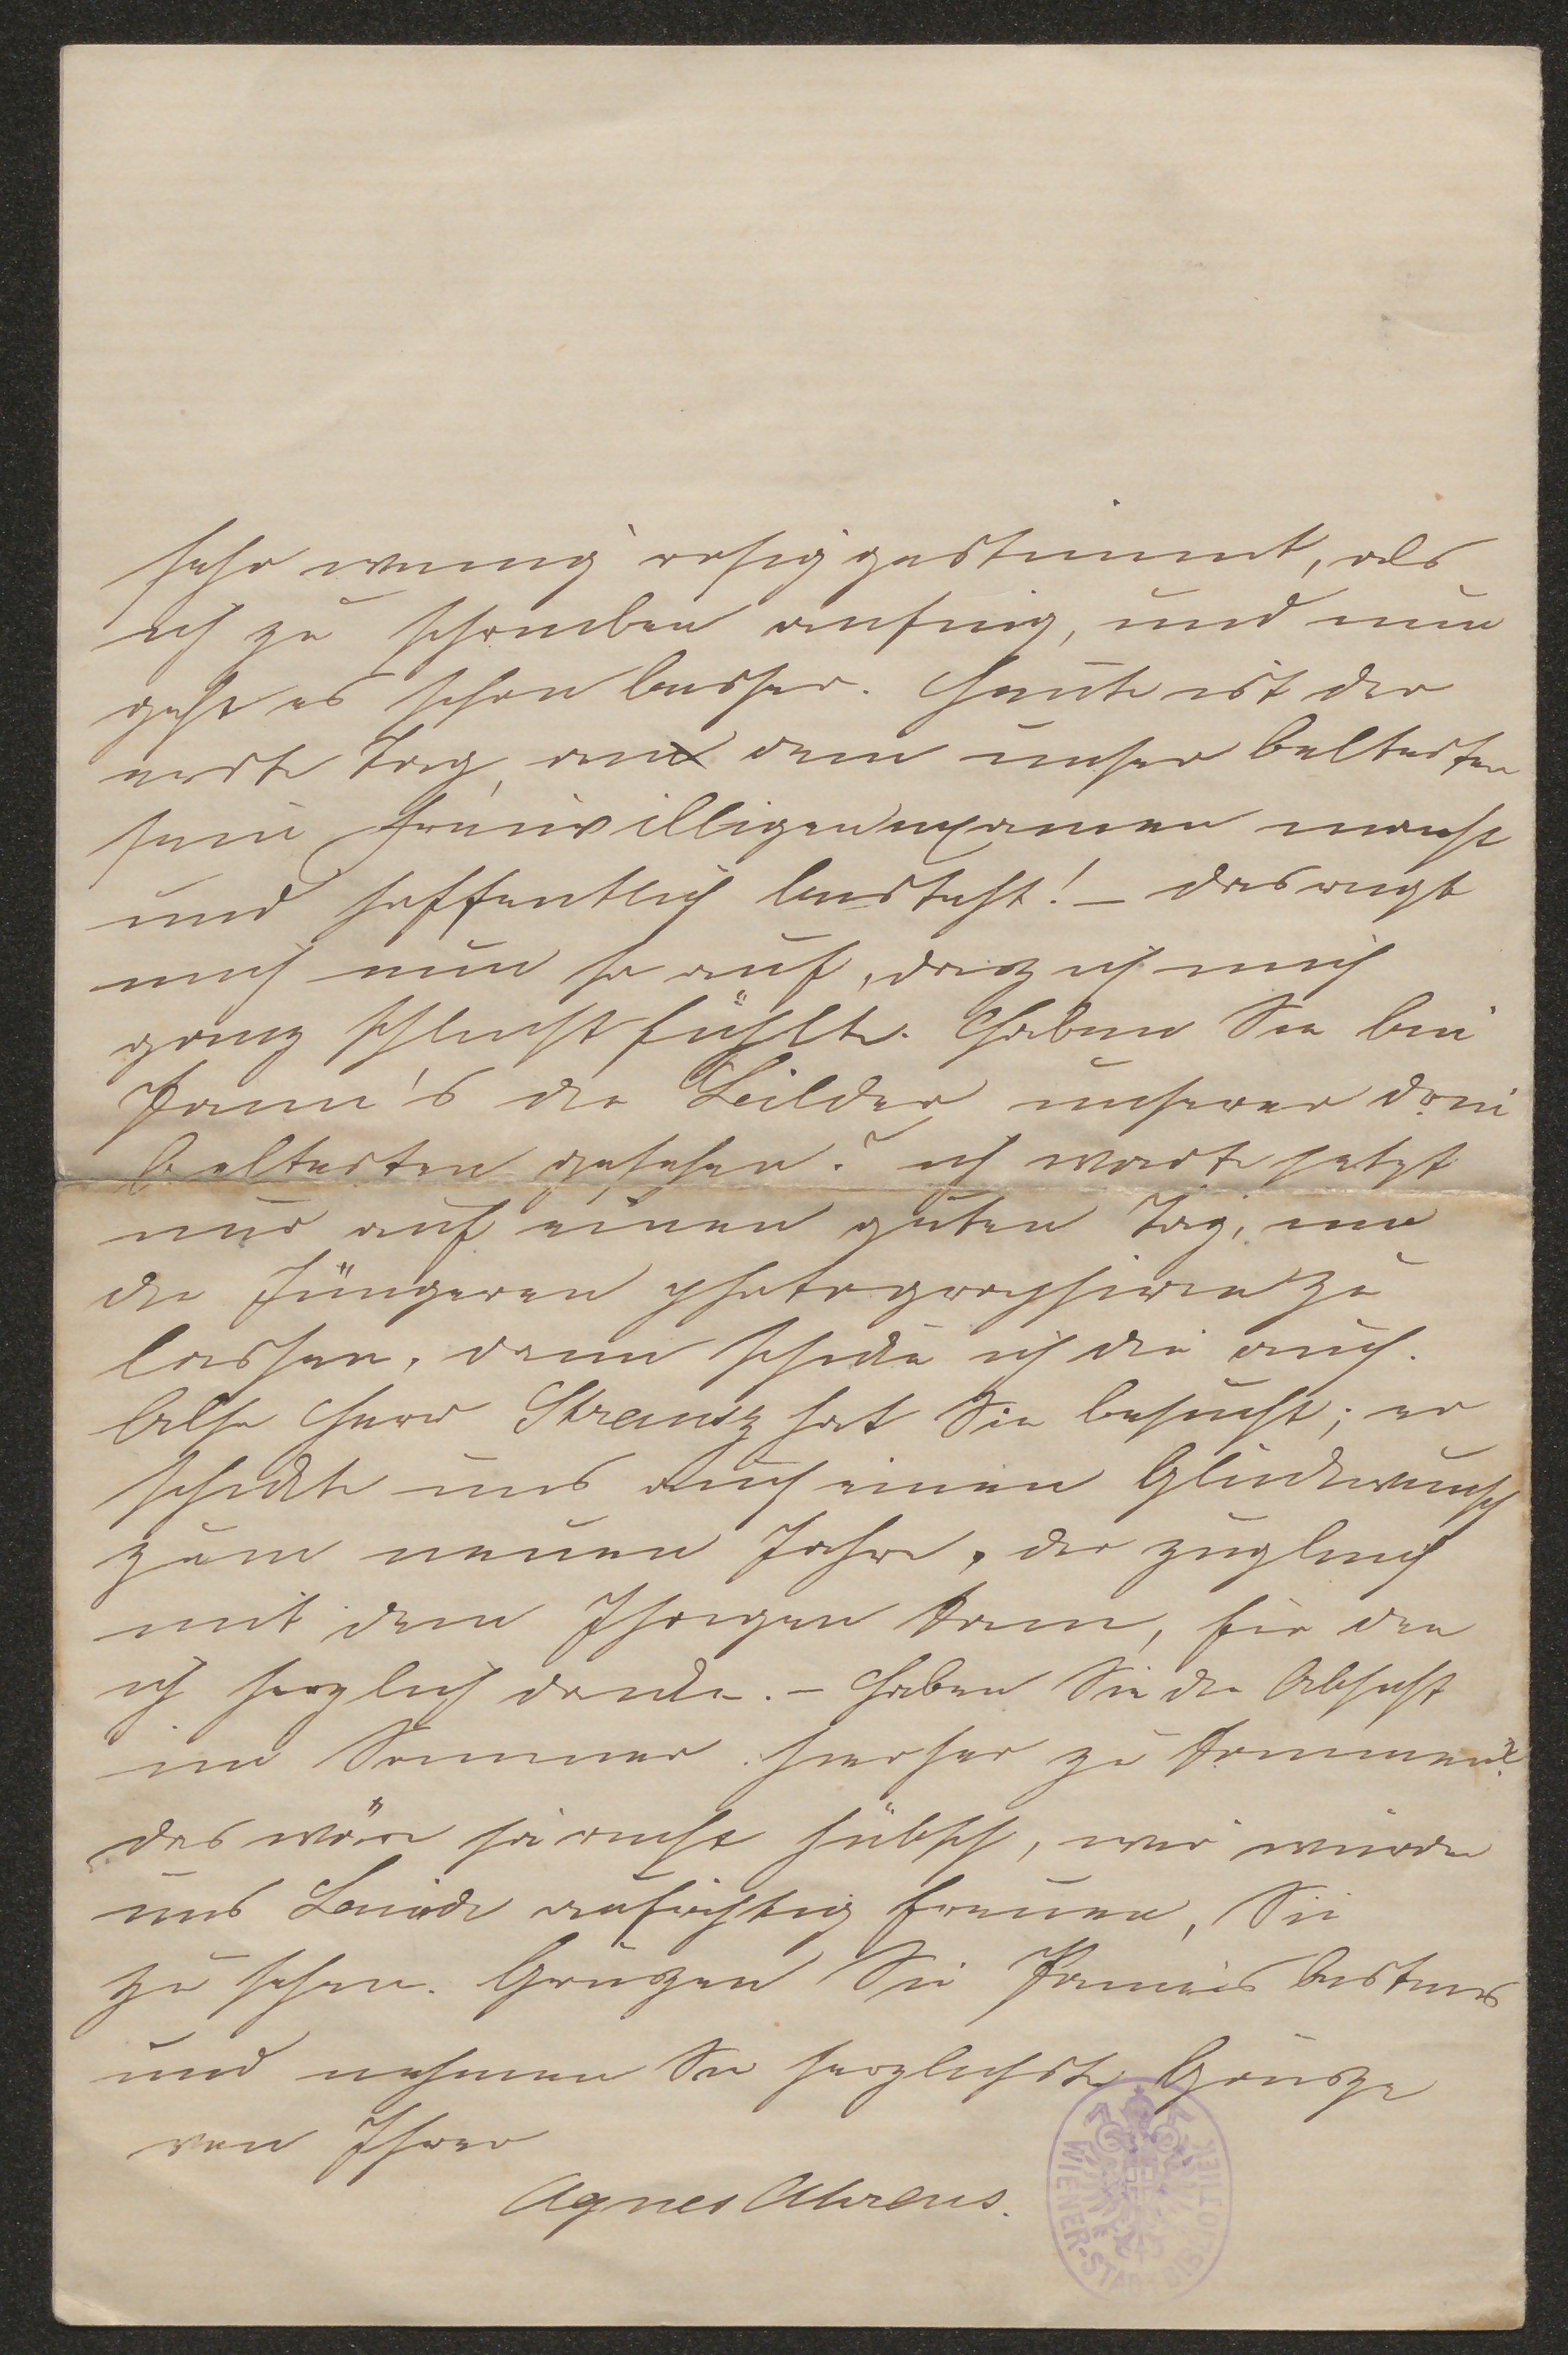 sehr wenig rosig gestimmt, als
ich zu schreiben anfing, und nun
geht es schon besser. Heute ist der
erste Tag, an dem unser Aeltester
sein Freiwilligenexamen macht
und hoffentlich besteht! – das regt
mich nun so auf, dasz ich mich
ganz schlecht fühlte. Haben Sie bei
die Bilder unserer drei
Aeltesten gesehen? ich warte jetzt
nur auf einen guten Tag, um
die Jüngeren photographiren zu
lassen, dann schicke ich die auch.
Also Herr Strausz hat Sie besucht; er
schickte uns auch einen Glückwunsch
zum neuen Jahre, der zugleich
mit dem Ihrigen kam, für den
ich herzlich danke. – Haben Sie die Absicht
im Sommer hierher zu kommen?
das wäre ja recht hübsch, wir würden
uns Beide aufrichtig freuen, Sie
zu sehen. Grüszen Sie bestens
und nehmen Sie herzlichste Grüsze
von Ihrer
Agnes Ahrens.
WIENER-STADT-BIBLIOTHEK